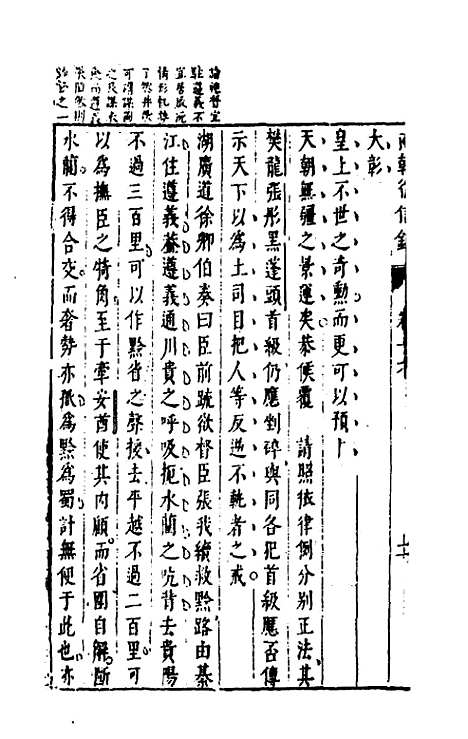 兩朝從信錄 卷十
大彰
皇上不世之奇勳而更可以預卜
天朝無疆之景運矣恭候覆 請照依律例分別正法其
樊龍張彤黑蓬頭首級仍應剉碎與同各犯首級應否傳
示天下以為土司目把人等反逆不軌者之戒
湖廣道徐卿伯奏曰臣前疏欲督臣張我續救黔路由綦
江住遵義蓋遵義通川貴之呼吸扼水藺之吭背去貴陽
不過三百里可以作黔省之聲援去平越不過二百里可
以為撫臣之犄角至于牽安酋使其內顧而省圍自解斷
水藺不得合交而奢勢亦孤為黔為蜀計無便于此也亦
論總督宜
駐遵義不
宜居辰沅
情形